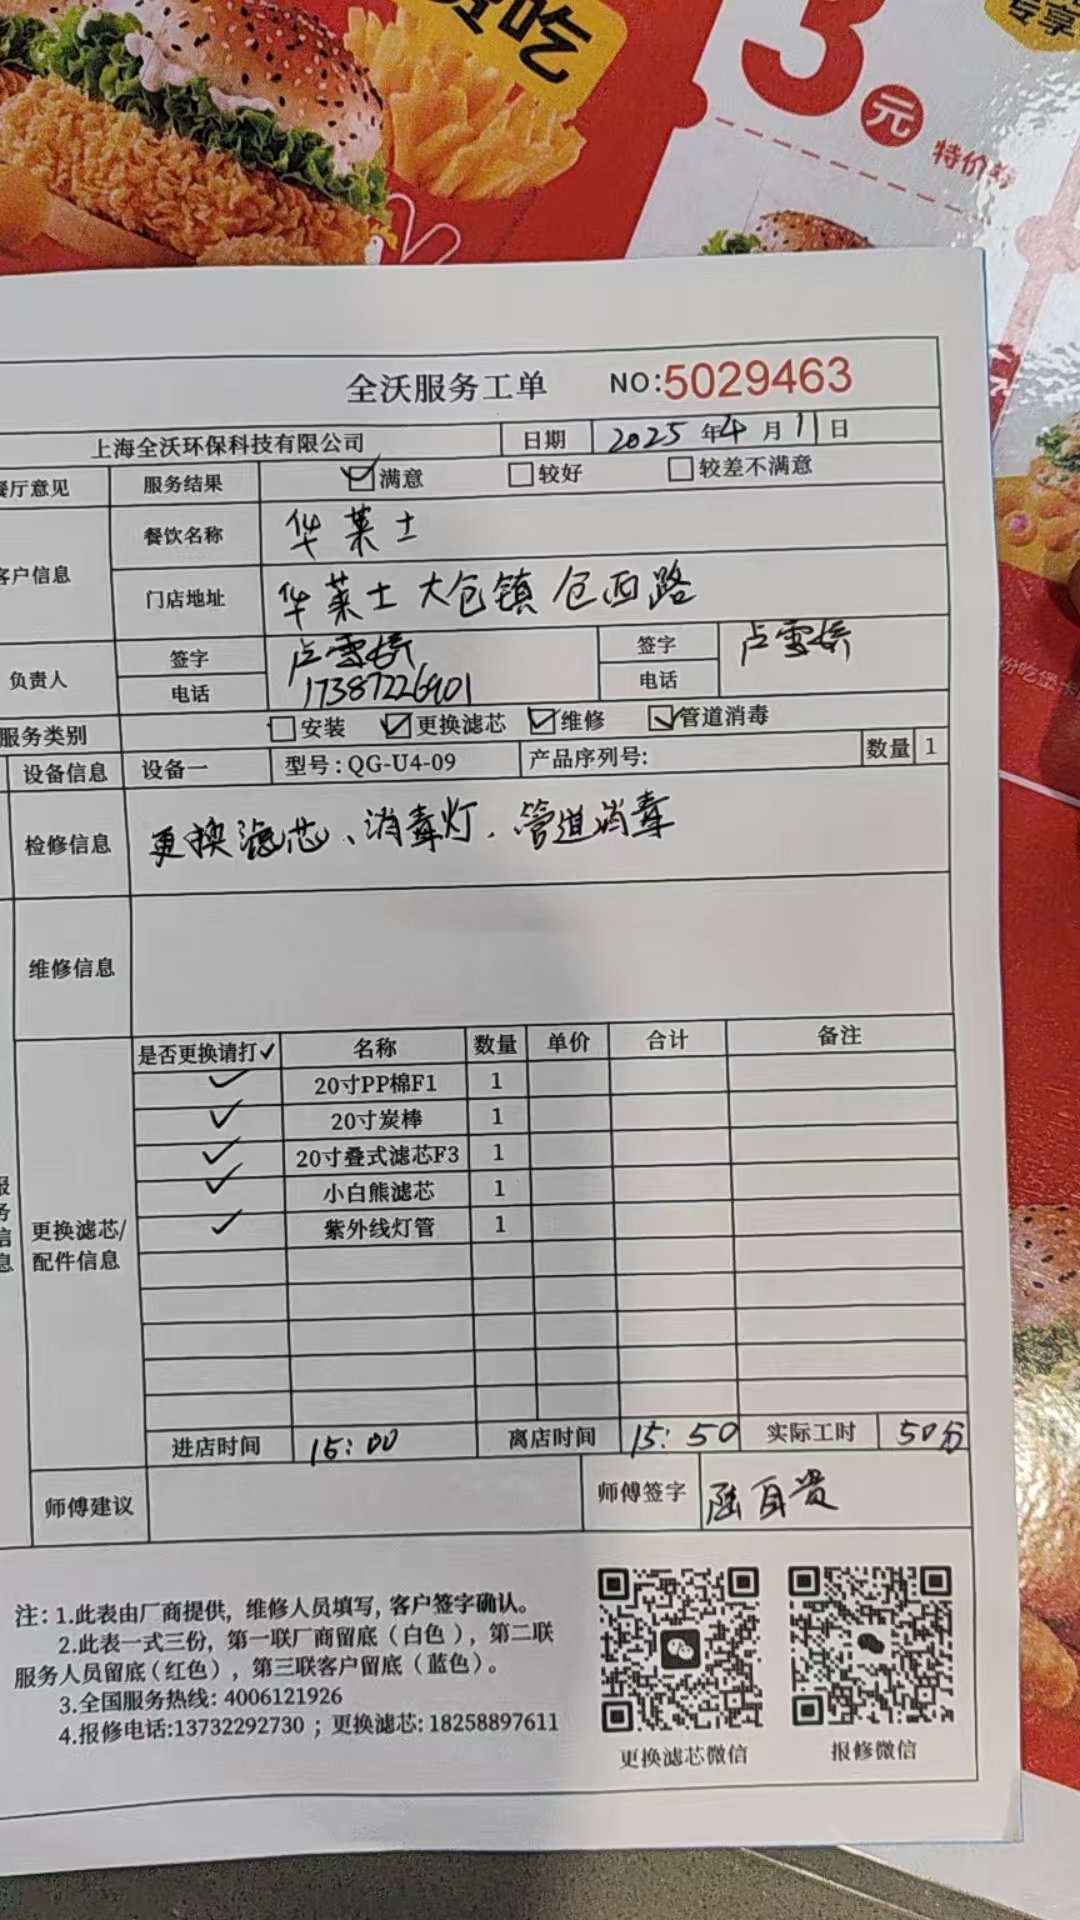 吃
专享
3元
特价券
全沃服务工单 NO:5029463
上海全沃环保科技有限公司 日期 2025年4月11日
餐厅意见 服务结果 ☑满意 □较好 □较差不满意
客户信息 餐饮名称 华莱士
门店地址 华莱士大仓镇仓西路
负责人 签字 卢雪娇 签字 卢雪娇
电话 17387226901 电话
服务类别 □安装 ☑更换滤芯 ☑维修 ☑管道消毒
设备信息 设备一 型号:QG-U4-09 产品序列号: 数量 1
检修信息 更换滤芯、消毒灯、管道消毒
维修信息
服务信息
更换滤芯/配件信息
是否更换请打✓ 名称 数量 单价 合计 备注
✓ 20寸PP棉F1 1
✓ 20寸炭棒 1
✓ 20寸叠式滤芯F3 1
✓ 小白熊滤芯 1
✓ 紫外线灯管 1
进店时间 15:00 离店时间 15:50 实际工时 50分
师傅建议 师傅签字 陆自贵
注: 1.此表由厂商提供, 维修人员填写, 客户签字确认。
2.此表一式三份, 第一联厂商留底(白色), 第二联
服务人员留底(红色), 第三联客户留底(蓝色)。
3.全国服务热线: 4006121926
4.报修电话:13732292730 ; 更换滤芯: 18258897611
更换滤芯微信 报修微信